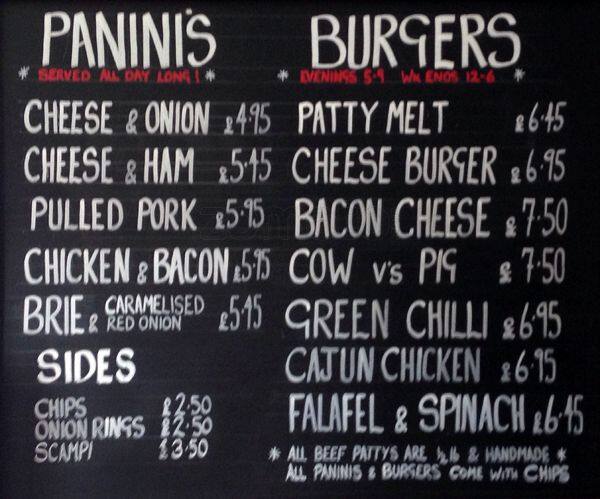 PANINI'S
* SERVED ALL DAY LONG! *
CHEESE & ONION £4.95
CHEESE & HAM £5.45
PULLED PORK £5.95
CHICKEN & BACON £5.95
BRIE & CARAMELISED RED ONION £5.45
SIDES
CHIPS £2.50
ONION RINGS £2.50
SCAMPI £3.50
BURGERS
* EVENINGS 5-9 WK ENDS 12-6 *
PATTY MELT £6.45
CHEESE BURGER £6.95
BACON CHEESE £7.50
COW V'S PIG £7.50
GREEN CHILLI £6.95
CAJUN CHICKEN £6.95
FALAFEL & SPINACH £6.45
* ALL BEEF PATTYS ARE ½ lb & HANDMADE *
ALL PANINIS & BURGERS COME WITH CHIPS